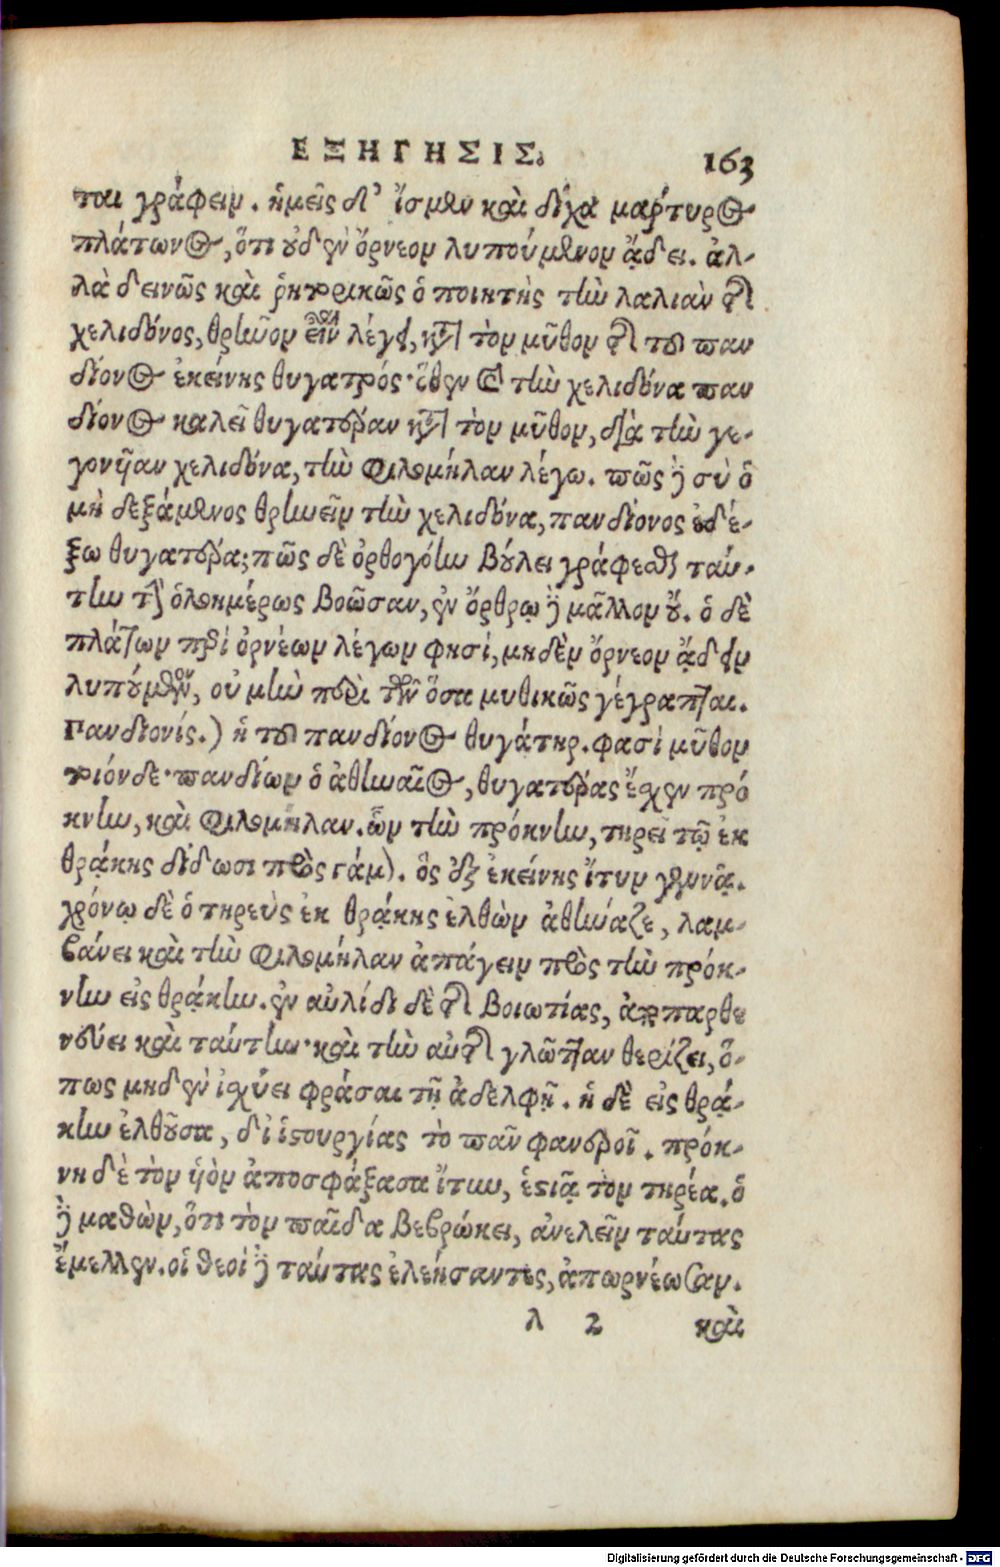 ΕΞΗΓΗΣΙΣ. 163
ται γράφειν. ἡμεῖς δ' ἴσμεν καὶ δίχα μάρτυρος
πλάτωνος, ὅτι οὐδὲν ὄρνεον λυπούμενον ᾄδει. ἀλ-
λὰ δεινῶς καὶ ῥητορικῶς ὁ ποιητὴς τὴν λαλιὰν τῆς
χελιδόνος, θρῆνον εἶναι λέγει, κατὰ τὸν μῦθον τῆς τοῦ παν
δίονος ἐκείνης θυγατρός· ὅθεν καὶ τὴν χελιδόνα παν
δίονος καλεῖ θυγατέραν κατὰ τὸν μῦθον, διὰ τὴν γε-
γονῆαν χελιδόνα, τὴν Φιλομήλαν λέγω. πῶς δὲ σὺ ὁ
μὴ δεξάμενος θρηνεῖν τὴν χελιδόνα, πανδίονος ἐδέ-
ξω θυγατέρα; πῶς δὲ ὀρθογόην βούλει γράφεσθαι ταύ-
την τὴν ὁλοημέρως βοῶσαν, ἐν ὄρθρῳ δὲ μᾶλλον οὔ. ὁ δὲ
πλάτων περὶ ὀρνέων λέγων φησί, μηδὲν ὄρνεον ᾄδειν
λυπούμενον, οὐ μὴν περὶ τῶν ὅσα μυθικῶς γέγραπται.
Πανδιονίς.) ἡ τοῦ πανδίονος θυγάτηρ. φασὶ μῦθον
τοιόνδε· πανδίων ὁ ἀθηναῖος, θυγατέρας ἔσχεν πρό
κνην, καὶ Φιλομήλαν. ὧν τὴν πρόκνην, τηρεῖ τῷ ἐκ
θρᾴκης δίδωσι πρὸς γάμον. ὃς ἐξ ἐκείνης ἴτυν γεννᾷ.
χρόνῳ δὲ ὁ τηρεὺς ἐκ θρᾴκης ἐλθὼν ἀθήναζε, λαμ-
βάνει καὶ τὴν Φιλομήλαν ἀπάγειν πρὸς τὴν πρόκ-
νην εἰς θρᾴκην. ἐν αὐλίδι δὲ τῆς βοιωτίας, ἀποπαρθε
νεύει καὶ ταύτην· καὶ τὴν αὐτῆς γλῶτταν θερίζει, ὅ-
πως μηδὲν ἰσχύει φράσαι τῇ ἀδελφῇ. ἡ δὲ εἰς θρᾴ-
κην ἐλθοῦσα, δι' ἱστουργίας τὸ πᾶν φανεροῖ. πρόκ-
νη δὲ τὸν υἱὸν ἀποσφάξασα ἴτυν, ἑστιᾷ τὸν τηρέα. ὁ
δὲ μαθὼν, ὅτι τὸν παῖδα βεβρώκει, ἀνελεῖν ταύτας
ἔμελλεν. οἱ θεοὶ δὲ ταύτας ἐλεήσαντες, ἀπωρνέωσαν.
λ 2 καὶ
Digitalisierung gefördert durch die Deutsche Forschungsgemeinschaft - DFG